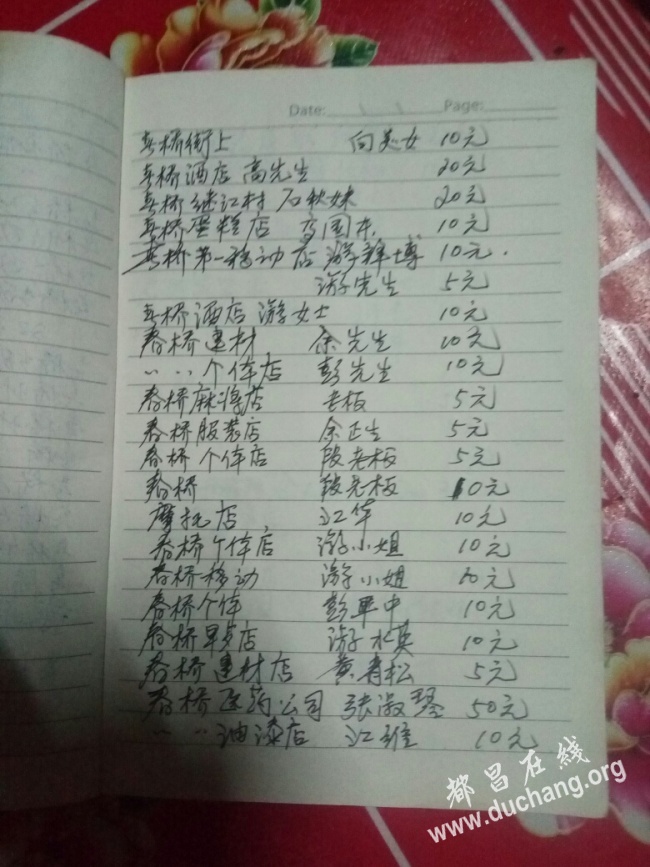 Date: Page:
春桥街上 向美女 10元
春桥酒店 高先生 20元
春桥继江村 石秋妹 20元
春桥蛋糕店 李国本 10元
春桥第一移动店 游祥博 10元.
游先生 5元
春桥酒店 游女士 10元
春桥建材 余先生 10元
〃 〃 个体店 彭先生 10元
春桥麻将店 老板 5元
春桥服装店 余正生 5元
春桥个体店 段老板 5元
春桥 段老板 10元
摩托店 江华 10元
春桥个体店 游小姐 10元
春桥移动 游小姐 10元
春桥个体 彭平中 10元
春桥早点店 游水英 10元
春桥建材店 黄青松 5元
春桥医药公司 张淑琴 50元
〃 〃 油漆店 江维 10元
都昌在线
www.duchang.org